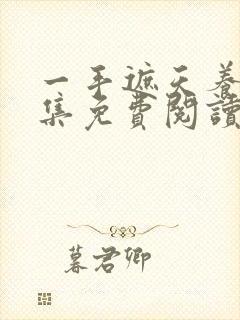 一手遮天養
集免費閱讀
暮君卿